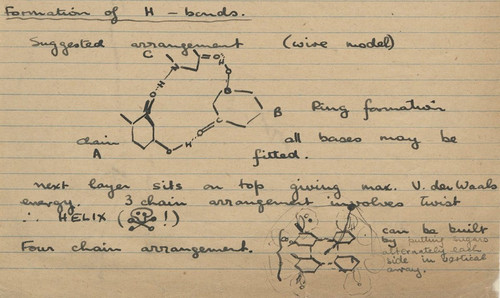 Formation of H - bonds.
Suggested arrangement (wire model)
C
N =O H
H O
O N
B Ring formation
O C
chain O H all bases may be
A fitted.
next layer sits on top giving max. V. der Waals
energy. 3 chain arrangement involves twist
∴ HELIX ( !)
Four chain arrangement. can be built
by putting sugars
alternately each
side in vertical
array.